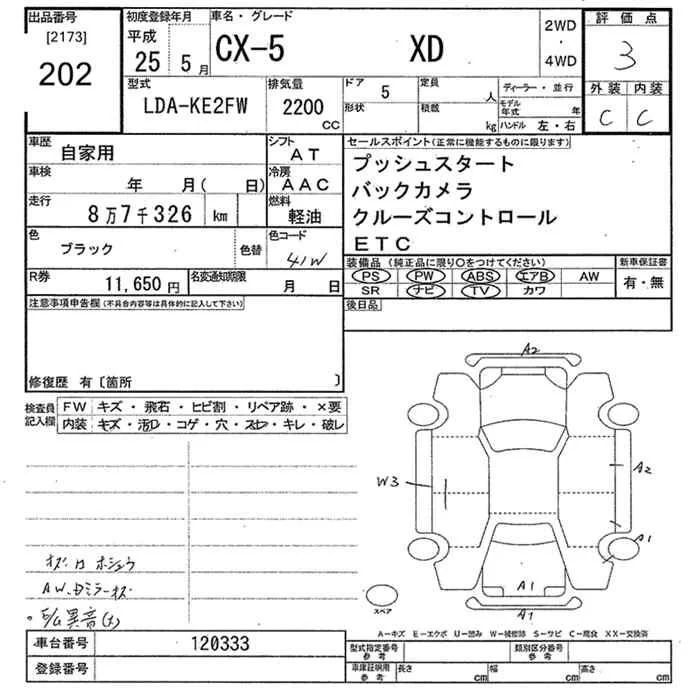 出品番号 初度登録年月 車名・グレード 2WD 評価点
[2173] 平成 ・
202 25 5月 CX-5 XD 4WD 3
型式 排気量 ドア 5 定員 人 ディーラー・並行 外装 内装
LDA-KE2FW 2200 CC 形状 積載 kg モデル年式 年 C C
ハンドル 左・右
車歴 自家用 シフト AT セールスポイント(正常に機能するものに限ります)
車検 年 月( 日) 冷房 AAC プッシュスタート
走行 8万7千326 km 燃料 軽油 バックカメラ
色 ブラック 色替 色コード 41W クルーズコントロール
ETC
R券 11,650円 名変通知期限 月 日 装備品(純正品に限り○をつけてください) 新車保証書
PS PW ABS エアB AW 有・無
SR ナビ TV カワ
注意事項申告欄(不具合内容等は具体的に記入して下さい) 後日品
修復歴 有〔箇所 〕
検査員 FW キズ・飛石・ヒビ割・リペア跡・×要
記入欄 内装 キズ・汚レ・コゲ・穴・スレ・キレ・破レ
A2
W3
A2
A1
A1
A1
AW.
異音
スペア
A−キズ E−エクボ U−凹み W−補修跡 S−サビ C−腐食 XX−交換済
車台番号 120333 型式指定番号 参考 類別区分番号 参考
登録番号 車庫証明用 参考 長さ cm 幅 cm 高さ cm